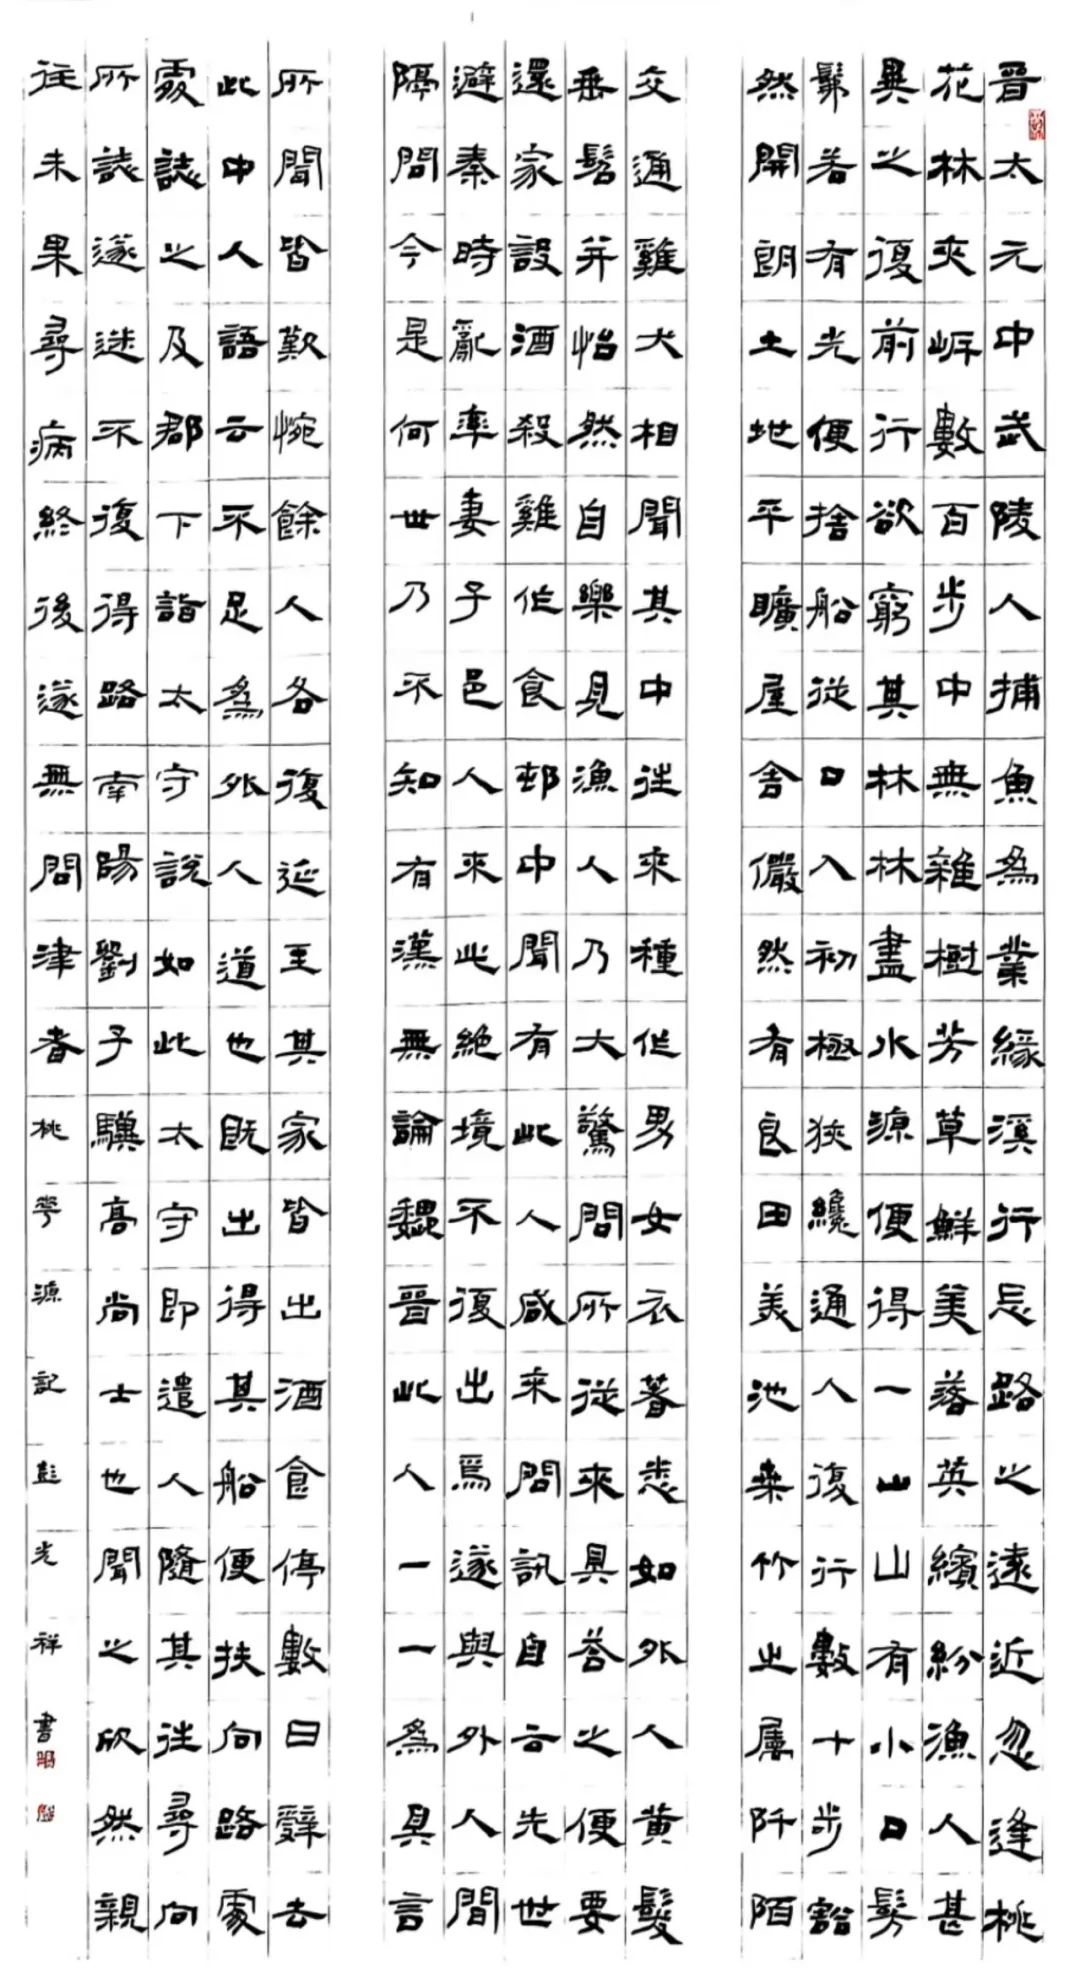 晉太元中武陵人捕魚為業緣溪行忘路之遠近忽逢桃
花林夾岸數百步中無雜樹芳草鮮美落英繽紛漁人甚
異之復前行欲窮其林林盡水源便得一山山有小口髣
髴若有光便捨船從口入初極狹纔通人復行數十步豁
然開朗土地平曠屋舍儼然有良田美池桑竹之屬阡陌
交通雞犬相聞其中往來種作男女衣著悉如外人黃髮
垂髫并怡然自樂見漁人乃大驚問所從來具荅之便要
還家設酒殺雞作食邨中聞有此人咸來問訊自云先世
避秦時亂率妻子邑人來此絕境不復出焉遂與外人間
隔問今是何世乃不知有漢無論魏晉此人一一為具言
所聞皆歎惋餘人各復延至其家皆出酒食停數日辭去
此中人語云不足為外人道也既出得其船便扶向路處
處誌之及郡下詣太守說如此太守即遣人隨其往尋向
所誌遂迷不復得路南陽劉子驥高尚士也聞之欣然親
往未果尋病終後遂無問津者桃華源記彭光祥書